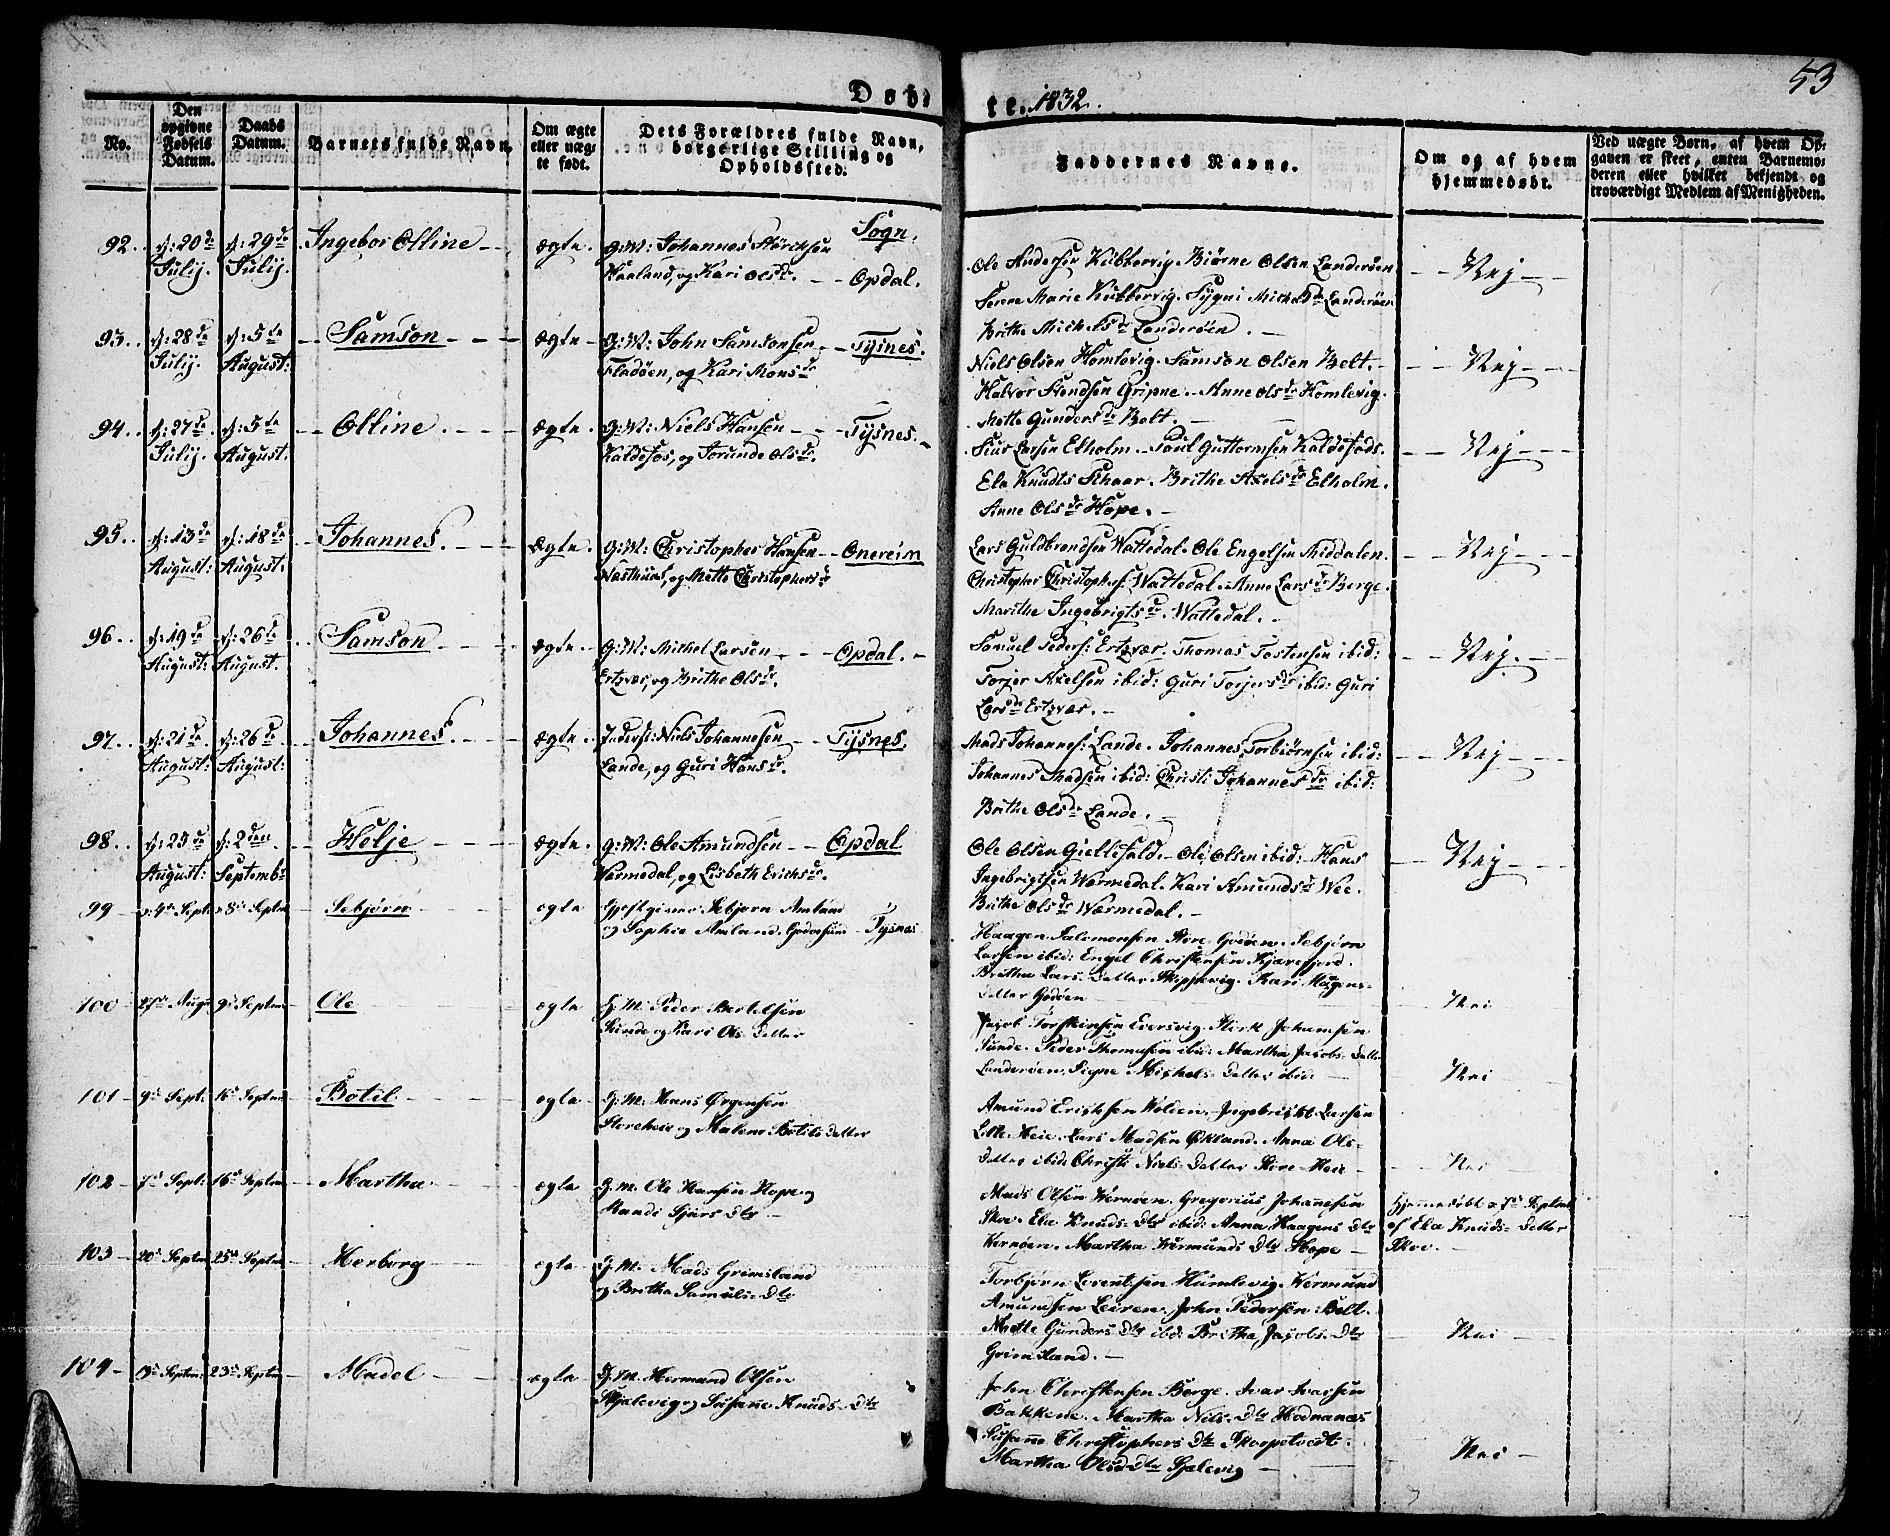 53
Døbte. 1832.
No.
Den opgivne Fødsels Datum.
Daabs Datum.
Barnets fulde Navn.
Om ægte eller uægte født.
Dets Forældres fulde Navn, borgerlige Stilling og Opholdssted.
Faddernes Navne.
Om og af hvem hjemmedøbt.
Ved uægte Børn, af hvem Opgaven er skeet, enten Barnemoderen eller hvilket bekjendt og troværdigt Medlem af Menigheden.
92. d: 20de Julij. d: 29de Julij. Ingebor Olline ægte. G:M: Johannes Størcksen Sogn.
Haaland, og Kari Olsdr. Opdal.
Ole Andersen Kubbervig. Biørne Olsen Landerøen
Marie Kubbervig. Sygni Michelsdr Landerøen
Brithe Michelsdr Landerøen.
Nej
93. d: 28de Julij. d: 5te August: Samson ægte. G:M: John Samsonsen Tysnes.
Fladøen, og Kari Monsdr
Niels Olsen Homlevig. Samson Olsen Belt.
Halvor Gripne. Anne Olsdr Homlevig.
Mette Gundersdr Belt.
Nej
94. d: 27de Julij. d: 5te August: Olline. ægte. G:M: Niels Hansen Tysnes.
Kaldefos, og Jorunde Olsdr.
Siur Larsen Elholm. Poul Guttormsen Kaldefods.
Ela Knudts Schaar. Brithe Axelsdr Elholm.
Anne Olsdr Hope.
Nej
95. d: 13de August: d: 18de August. Johannes. ægte. G:M: Christopher Hansen Onereim
og Mette Christophersdr
Lars Guldbrandsen Wattedal. Ole Engelsen Middalen.
Christopher Christophs: Wattedal. Anne Larsdr Berge.
Marithe Ingebrigtsdr. Wattedal.
Nej
96. d: 19de August: d: 26de August. Samson ægte. G:M: Michel Larsen Opdal.
Ertzvær, og Brithe Olsdr.
Samuel Peders: Ertzvær. Thomas Tostensen ibid:
Torjer Axelsen ibid: Guri Torjersdr ibid: Guri
Larsdr Ertzvær.
Nej.
97. d: 21de August: d: 26de August: Johannes. ægte. Inderst: Niels Johannesen Tysnes.
Lande, og Guri Hansdr.
Mads Johannes: Lande. Johannes Torbiørnsen ibid:
Johannes Madsen ibid: Christi Johannesdr ibid:
Brithe Olsdr Lande.
Nej
98. d: 25de August: d: 2den Septembr Helje ægte. G:M: Ole Amundsen Opdal
Wærmedal, og Lisbeth Erichsdr.
Ole Olsen Giellefald. Ole Olsen ibid: Hans
Ingebrigtsen Wærmedal. Kari Amundsdr Wee.
Brithe Olsdr Wærmedal.
Nej
99 4de Sept. 8de Septm Sebjørn ægte Gjestgiver Sebjørn Amland
og Sophie Amland Godøsund Tysnæs
Haagen Salomonsen Store Godøen. Sebjørn
Larsen ibid: Engel Christensen Kjærefjord.
Britha Lars Datter Skippevig. Kari Magens
Datter Godøen
Nei
100 27de Augs 9de Septm Ole ægte G. M. Peder Bertelsen
Sunde og Kari Ols Datter
Jacob Torskinsen Eversvig. Sterk Johansen
Sunde. Peder Thomasen ibid: Martha Jacobs Datter
Landerøen, Signe Michels Datter ibid:
Nei
101 9de Sept: 16de Septm Botil. ægte G. M. Hans Ørgensen
Storeheie og Malene Botils datter
Amund Erichsen Wolden. Ingebrigt Larsen
Lille Heie. Lars Madsen Økland. Anna Ols
Datter ibid: Christi Niels Datter Store Heie
Nei
102 7de Sept: 16de Septm Martha ægte G. M. Ole Hansen Hope og
Randi Sjurs Dtr
Mads Olsen Wernøen. Gregorius Johannesen
Skoe. Ela Knuds Dtr ibid: Anna Haagens Dtr
Wernøen. Martha Wermunds Dtr Hope
Hjemmedøbt d 7de Septm af Ela Knuds Datter Skoe.
103 20de Septm 25de Septm Herborg ægte G. M. Mads Grimsland
og Britha Samuels Dtr
Torbjørn Lorentsen Humlevig. Wermund
Amundsen Leiren. John Pedersen Belt.
Mette Gunders Dtr ibid: Britha Jacobs Dtr
Grimsland.
Nei
104 19de Septm: 23de Septm Madel ægte G. M. Hermand Olsen
Skjalevig og Susane Knuds Dtr
John Christensen Berge. Ivar Ivarsen
Bakkene. Martha Nils Dtr Hodnanæs
Susane Christophers Dtr Skorpetvedt.
Martha Olsd Dtr Sjalevig
Nei